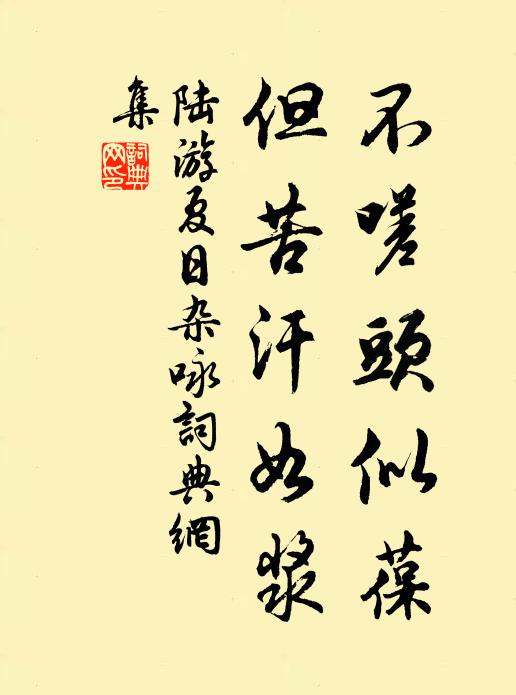 不嗟頭似葆
但苦汗如漿
陆游夏日杂咏詞典網
集
詞典
网印